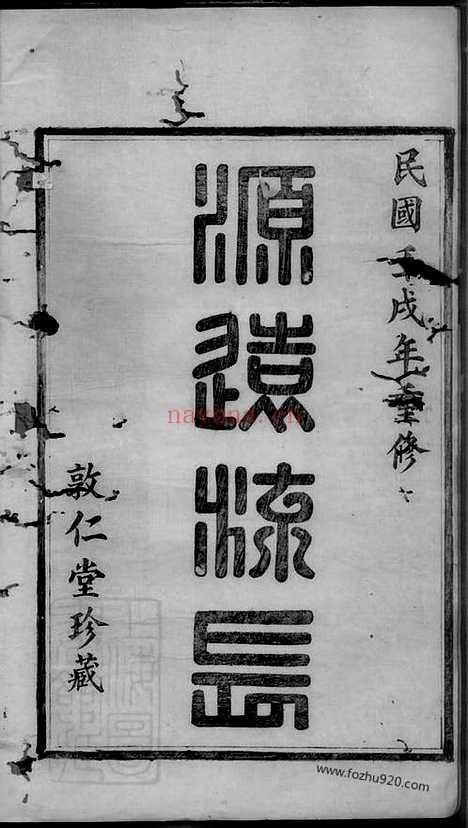 民國壬戌年重修
源遠流長
敦仁堂珍藏
nayona.cn
www.fozhu920.com